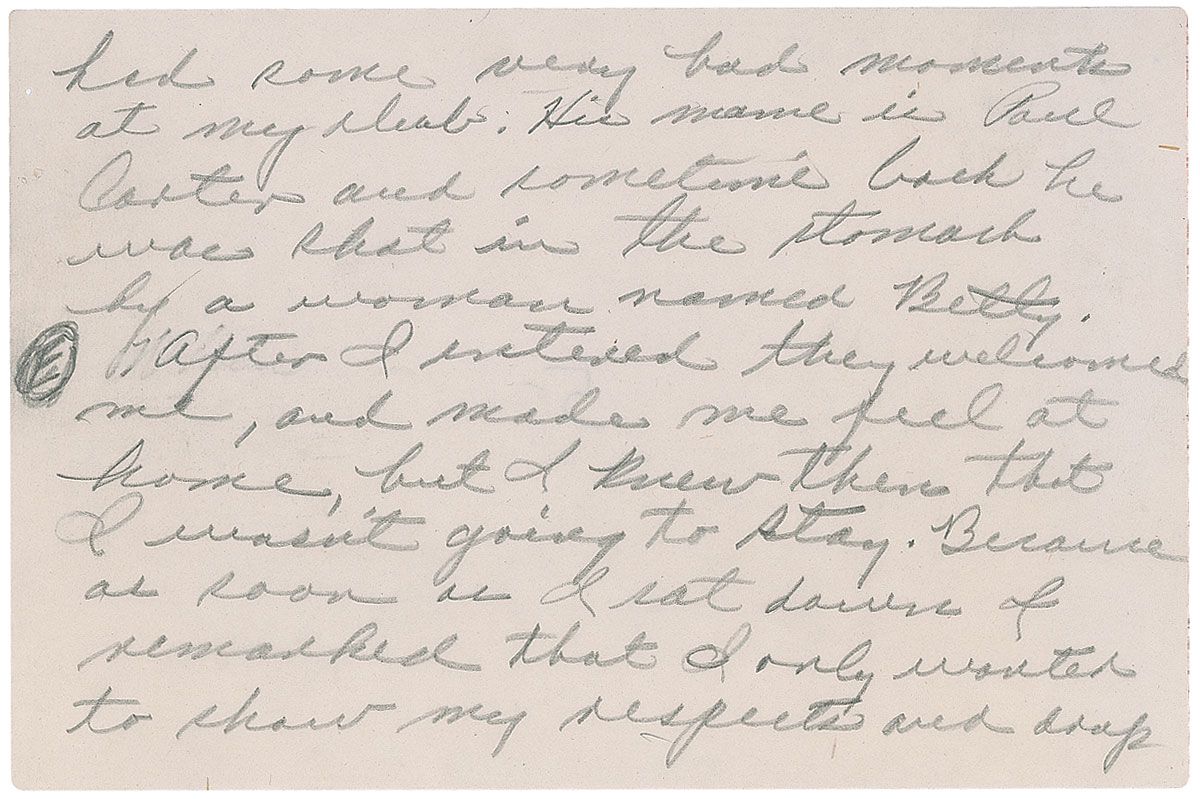 had some very bad moments
at my club. His name is Paul
Carter and sometime back he
was shot in the stomach
by a woman named Betty.
E After I entered they welcomed
me, and made me feel at
home, but I knew then that
I wasn't going to stay. Because
as soon as I sat down I
remarked that I only wanted
to show my respects and drop